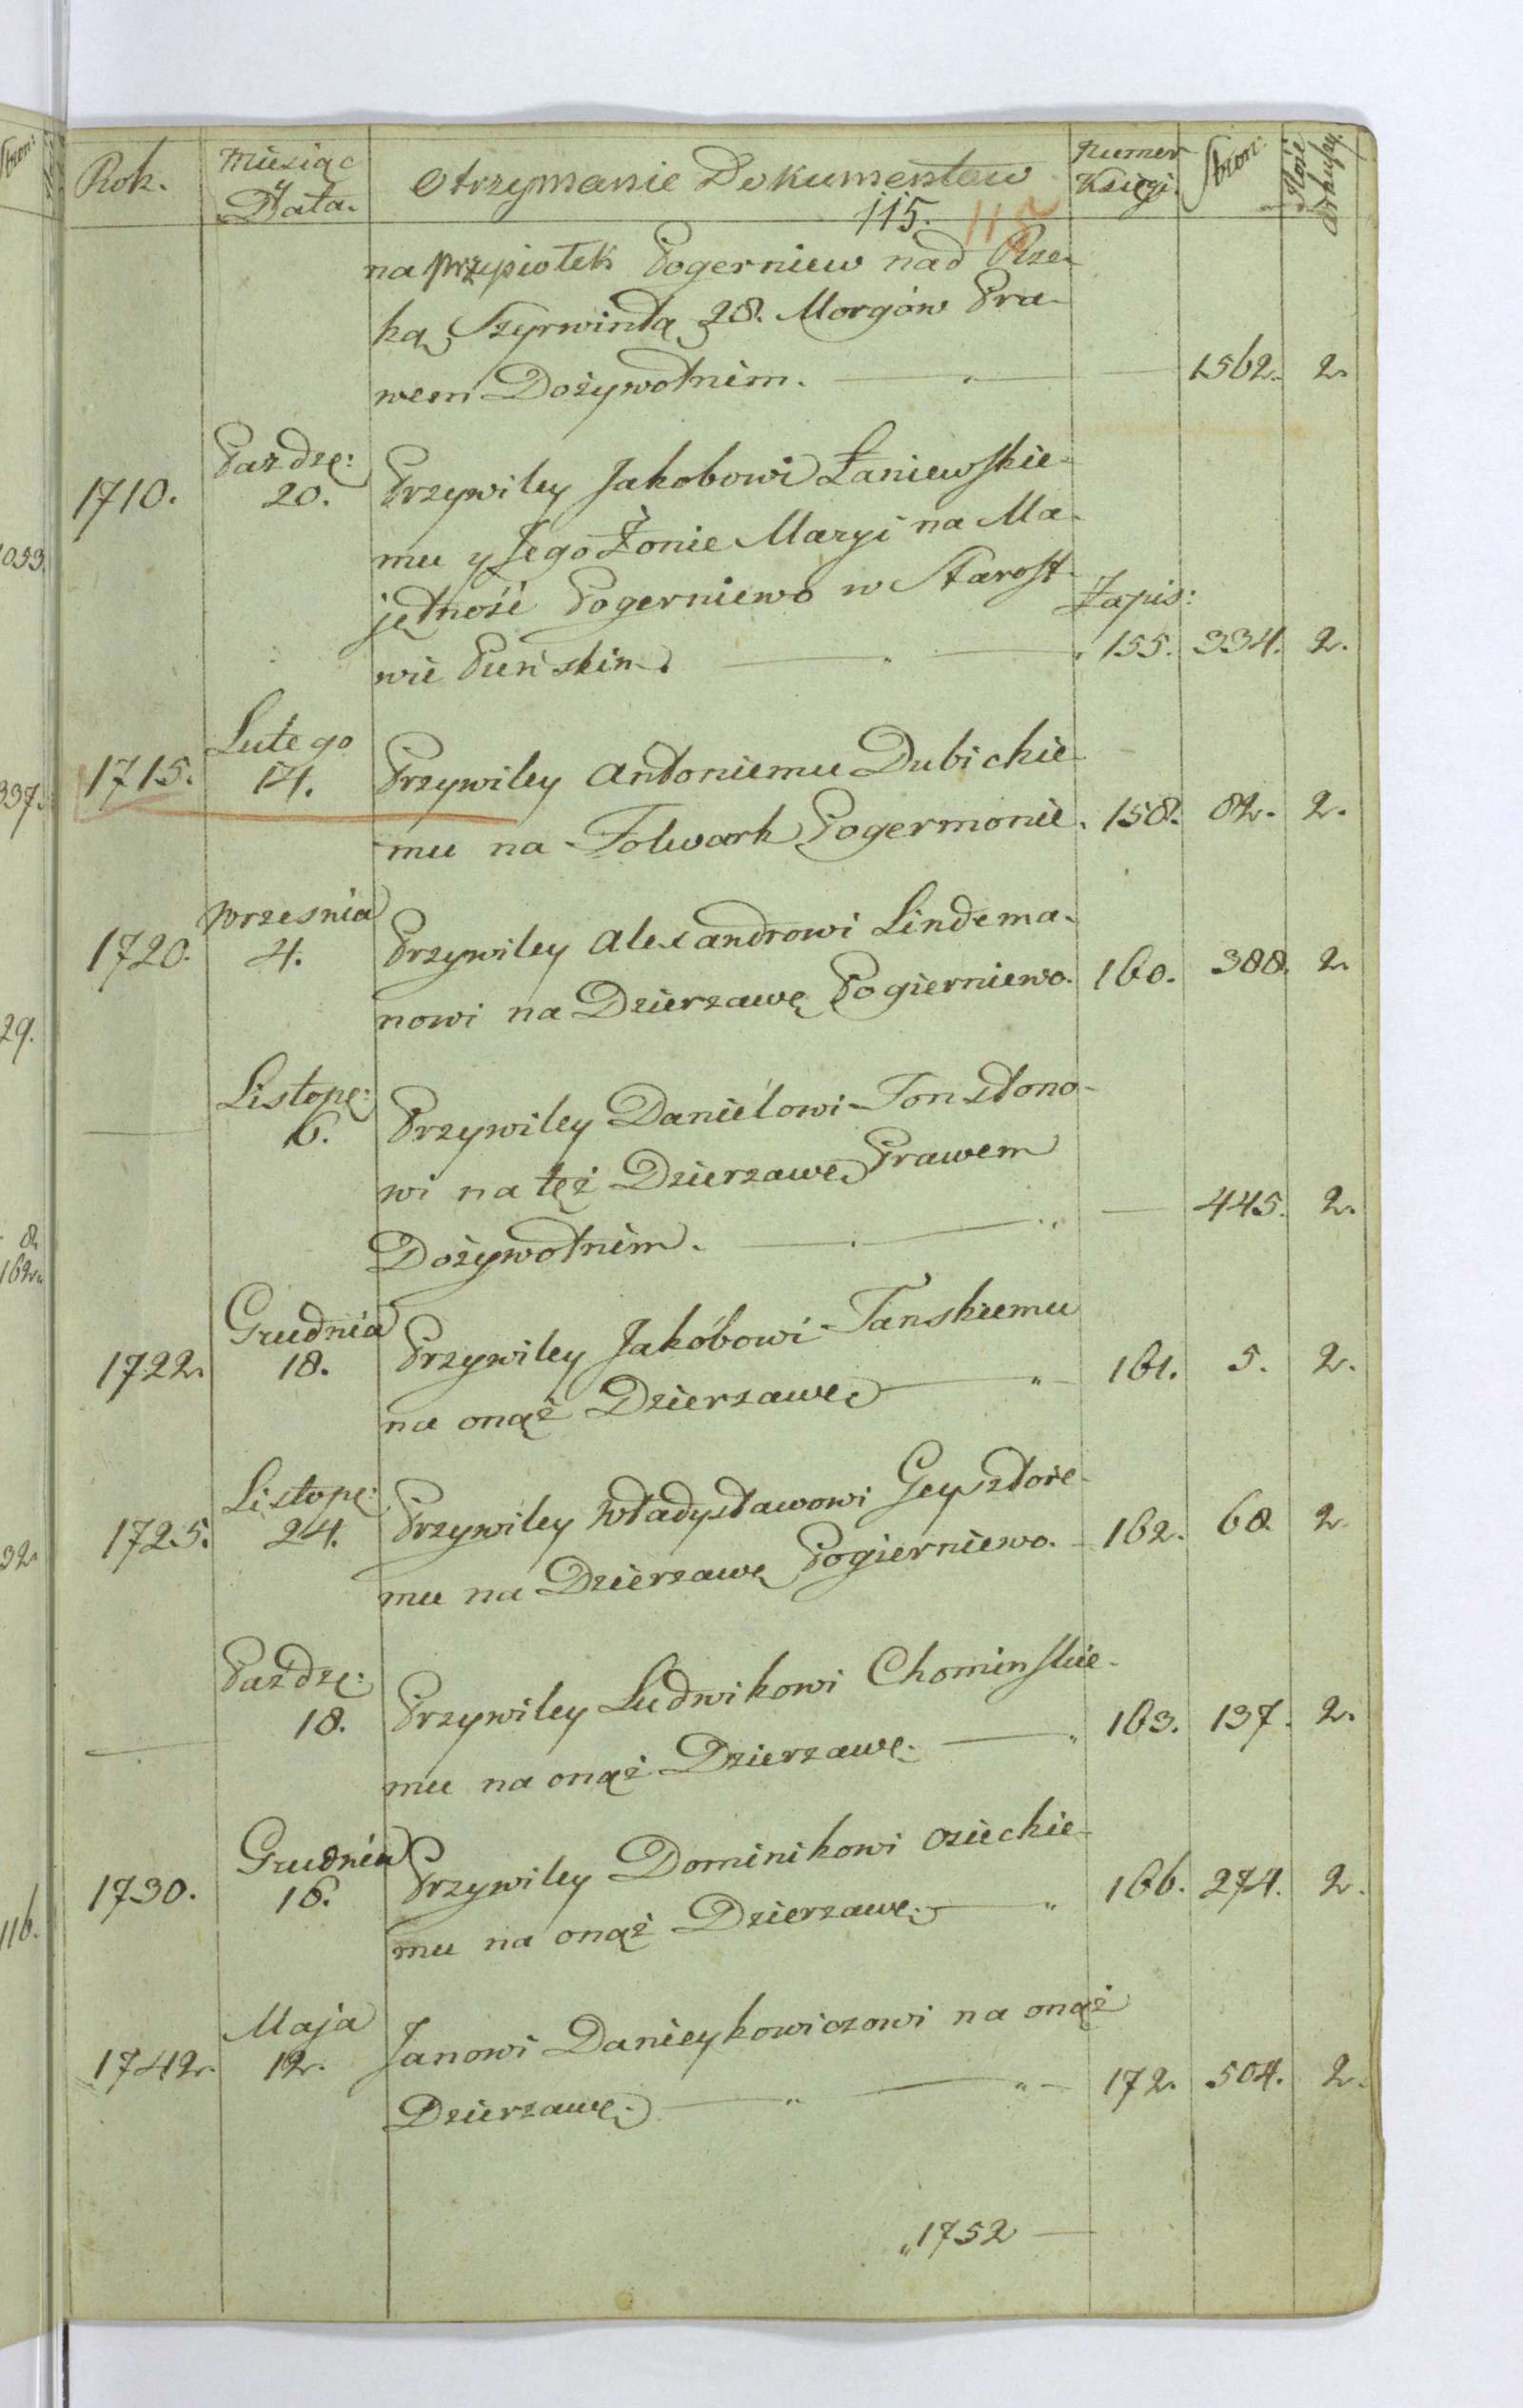 Rok. Miesiąc y Data. Otrzymanie Dokumentow Numer Księgi. Stron:
115. 115
na przypiotek Pogerniew nad Rze-
ką Szyrwintą 28. Morgów Pra-
wem Dożywotnim. — 1562. 2.
Paździ:
1710. 20. Przywiley Jakobowi Łaniewskie-
mu y Jego Żonie Maryi na Ma-
jętność Pogerniewo w Starost-
Zapis:
wie Puńskim. — 155. 334. 2.
Lutego
1715. 14. Przywiley Antoniemu Dubickie-
mu na Folwark Pogermonie. 158. 82. 2.
Wrzesnia
1720. 4. Przywiley Alexandrowi Lindema-
nowi na Dzierzawę Pogierniewo. 160. 388. 2.
Listopa:
— 6. Przywiley Danielowi Tonsztono-
wi na tęż Dzierzawę Prawem
Dożywotnim. — 445. 2.
Grudnia
1722. 18. Przywiley Jakóbowi Tanskiemu
na onąż Dzierzawę — 161. 5. 2.
Listopa:
1725. 24. Przywiley Władysławowi Geysztore-
mu na Dzierzawę Pogierniewo. 162. 68. 2.
Paździ:
— 18. Przywiley Ludwikowi Chominskie-
mu na onąż Dzierzawę. — 163. 137. 2.
Grudnia
1730. 16. Przywiley Dominikowi Osieckie-
mu na onąż Dzierzawę. — 166. 274. 2.
Maja
1742. 12. Janowi Danieykowiczowi na onąż
Dzierzawę. — 172. 504. 2.
1752 —